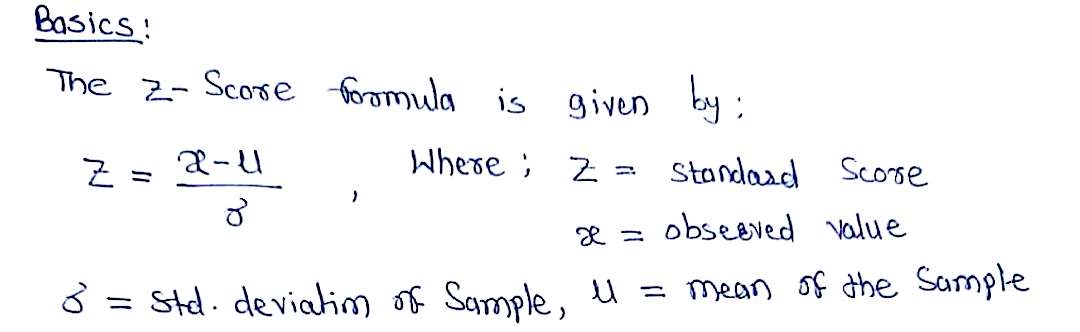 Basics:
The z-Score formula is given by:
Z = x-μ / σ , Where; Z = Standard Score
x = observed value
σ = Std. deviation of Sample, μ = mean of the Sample